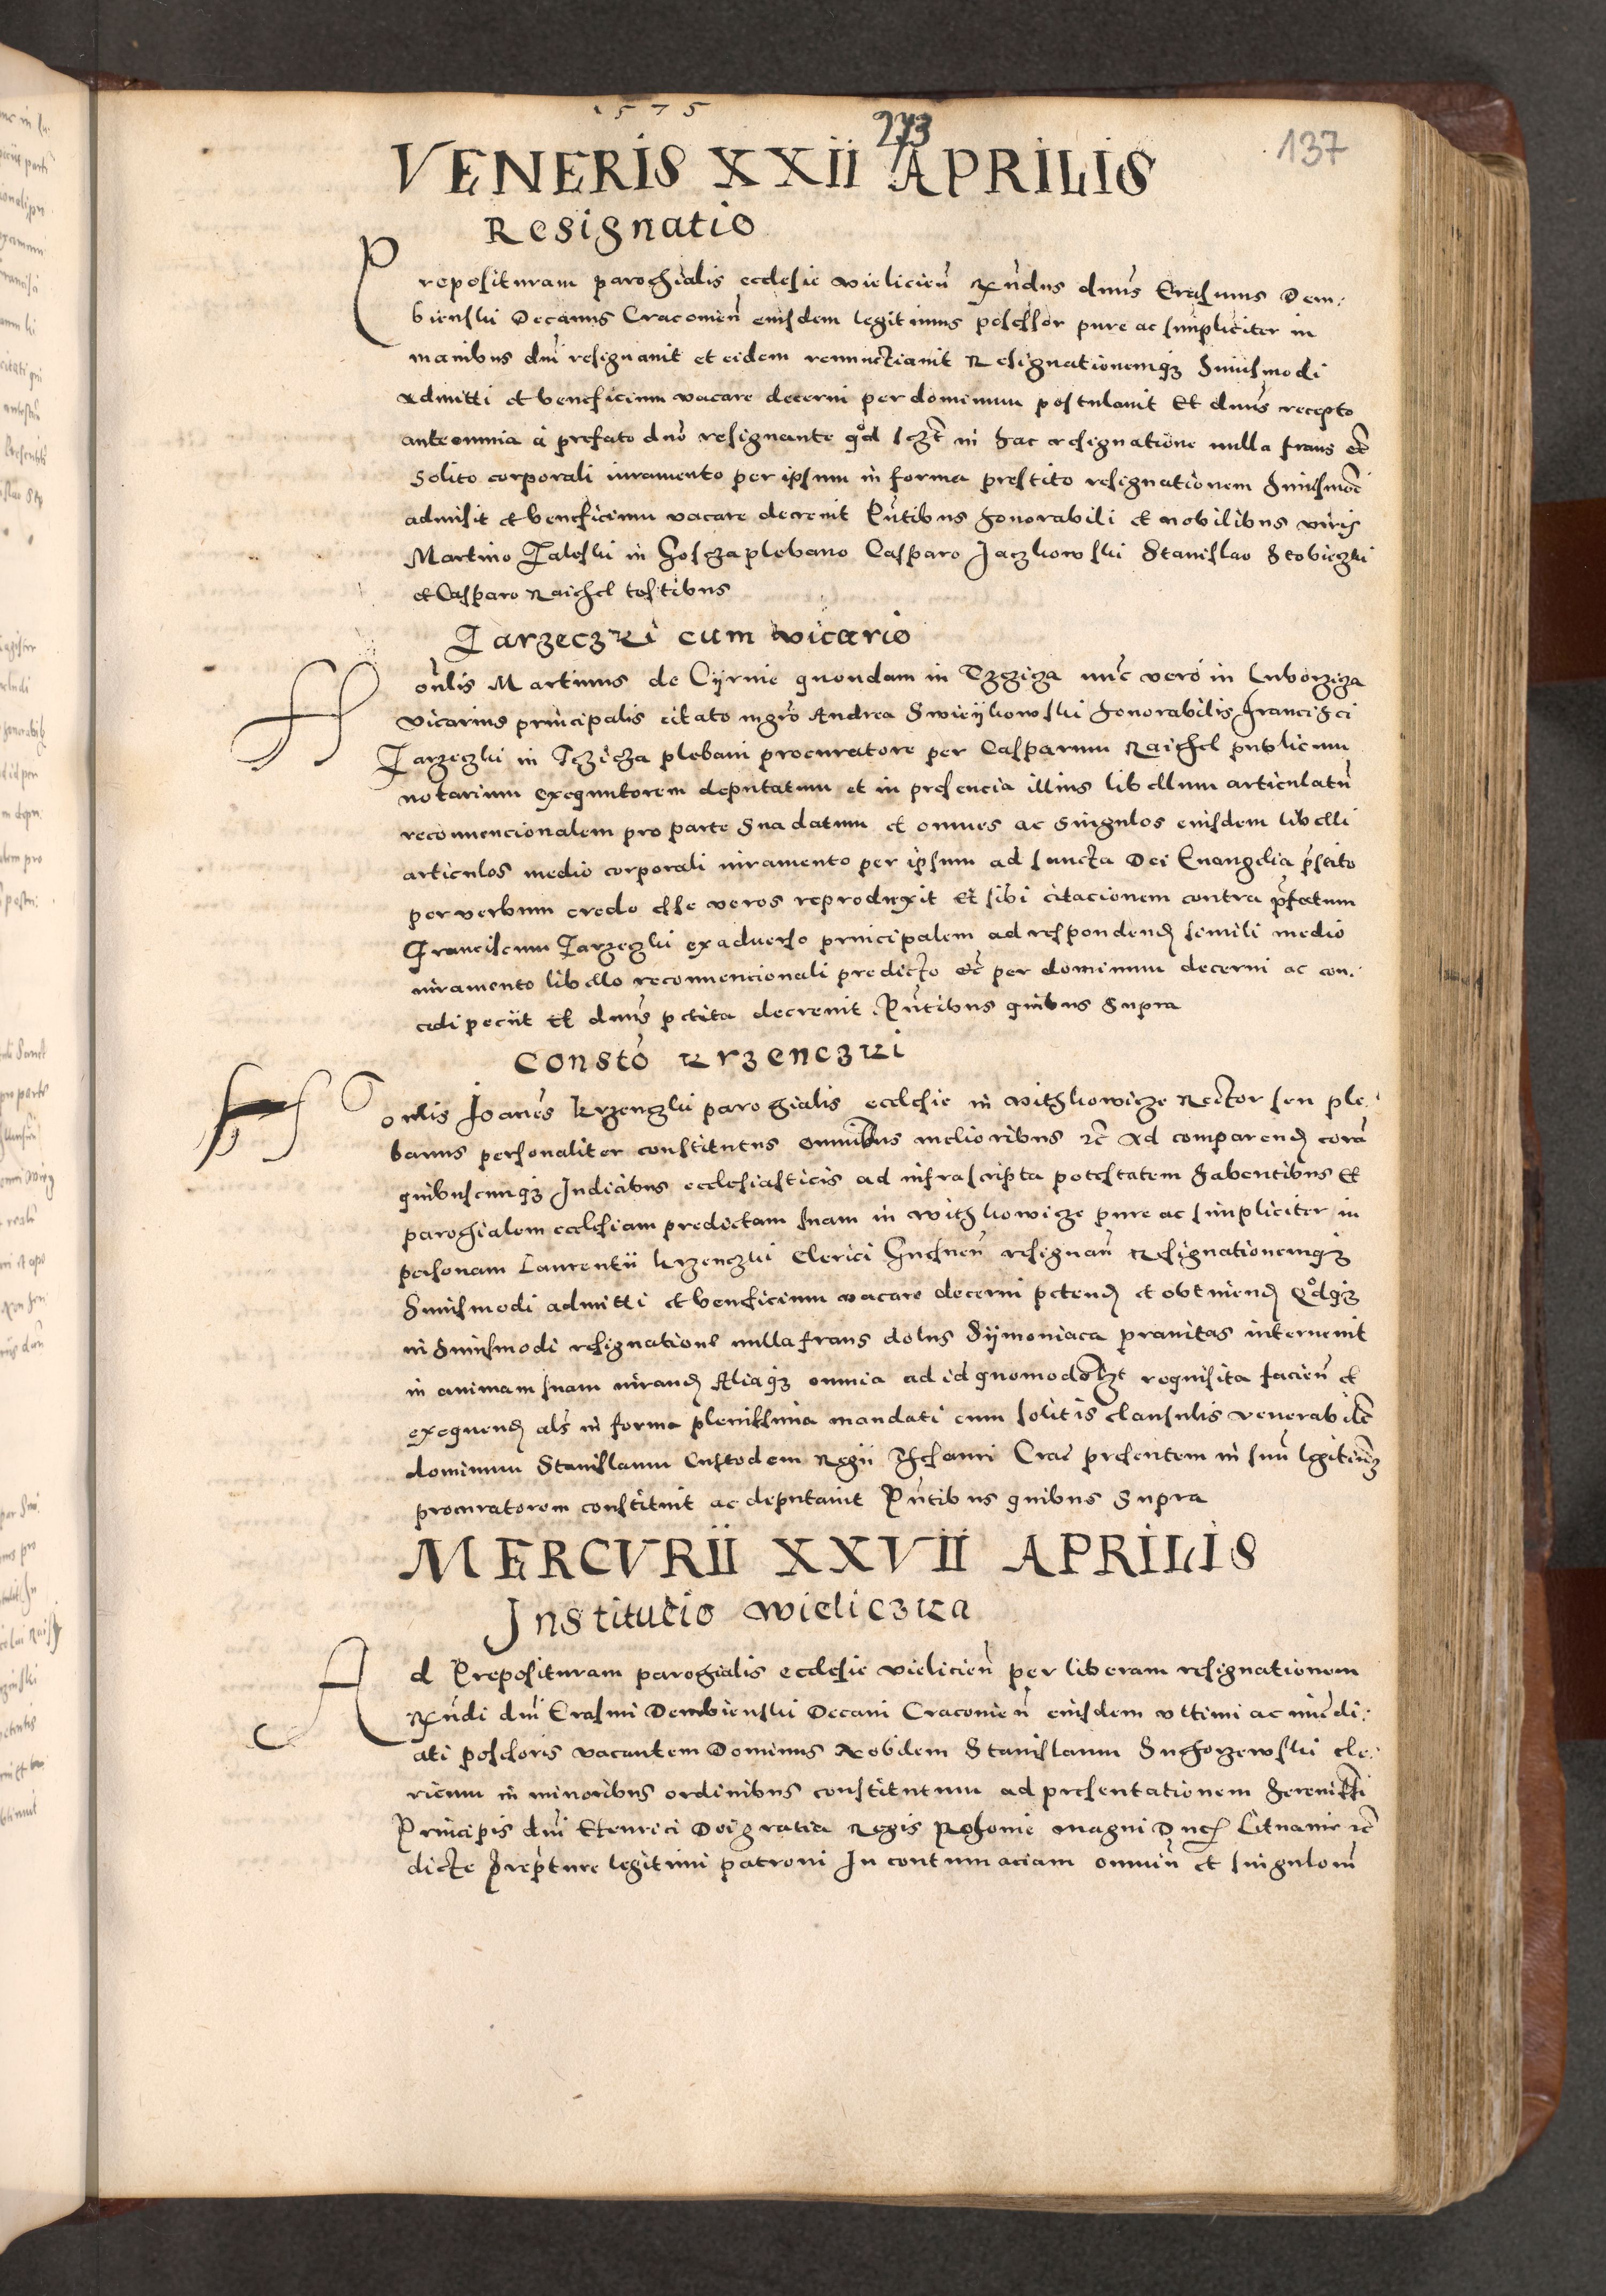 1575
273
137
VENERIS XXII APRILIS
Resignatio
Preposituram parochialis ecclesie vielicieñ Rñdus dnus Erasmus Dem:
bienski Decanus Cracovieñ eiusdem legitimus possessor pure ac simpliciter in
manibus dni resignavit et eidem renunctiavit Resignationemqȝ huiusmodi
admitti et beneficium vacare decerni per dominum postulavit Et dnus recepto
ante omnia à prefato dno resignante qd in hac resignatione nulla fraus etc
solito corporali iuramento per ipsum in forma prestito resignationem huiusmoi
admisit et beneficium vacare decrevit Pñtibus honorabili et nobilibus viris
Martino Zaleski in plebano Casparo Jaczkowski Stanislao Stobieczki
et Casparo Raichel testibus
Zarzeczki cum vicario
Honlis Martinus de Cyrnie quondam in Tczcziza nuc vero in Luborzicza
vicarius principalis citato mgro Andrea Swieykowski honorabilis Francisci
Zarzeczki in Tczicza plebani procuratore per Casparum Raichel publicum
notarium exequutorem deputatum et in presencia illius libellum articulatu
reconvencionalem pro parte sua datum et omnes ac singulos eiusdem libelli
articulos medio corporali iuramento per ipsum ad sancta Dei Evangelia pstito
per verbum credo esse veros reproduxit Et sibi citacionem contra pfatum
Franciscum Zarzeczki ex adverso principalem ad respondend simili medio
iuramento libello reconvencionali predicto etc per dominum decerni ac con:
cedi peciit Et dnus petita decrevit Pñtibus quibus supra
Consto Krzenczki
Honlis Joanes Krzenczki parochialis ecclesie in withkowicze Rector seu ple:
banus personaliter constitutus omnibus melioribus etc Ad comparend cora
quibuscunqȝ Iudicibus ecclesiasticis ad infrascripta potestatem habentibus Et
parochialem ecclesiam predictam suam in withkowicze pure ac simpliciter in
personam Laurentii Krzenczki Clerici Gnesneñ resignañ Resignationemqȝ
huiusmodi admitti et beneficium vacare decerni petend et obtinend Qdqȝ
in huiusmodi resignatione nulla fraus dolus Symoniaca pravitas intervenit
in animam suam iurand Aliaqȝ omnia ad id quomodolȝt requisita facieñ et
exequend als in forma plenissima mandati cum solitis clausulis venerabilẽ
dominum Stanislaum Custodem Regii Thesauri Crac presentem in suu legitimuȝ
procuratorem constituit ac deputavit Pñtibus quibus supra
MERCVRII XXVII APRILIS
Institutio wieliczka
Ad Preposituram parochialis ecclesie vielicieñ per liberam resignationem
Rñdi dni Erasmi Dembienski Decani Cracovieñ eiusdem ultimi ac imedi:
ati possesoris vacantem Dominus Nobilem Stanislaum Suchorzewski cle:
ricum in minoribus ordinibus constitutum ad presentationem Serenissi
Principis dni Henrici Dei gratia Regis Polonie magni Duc Lituanie etc
dicte prepture legitimi patroni In contumaciam omniu et singulorum